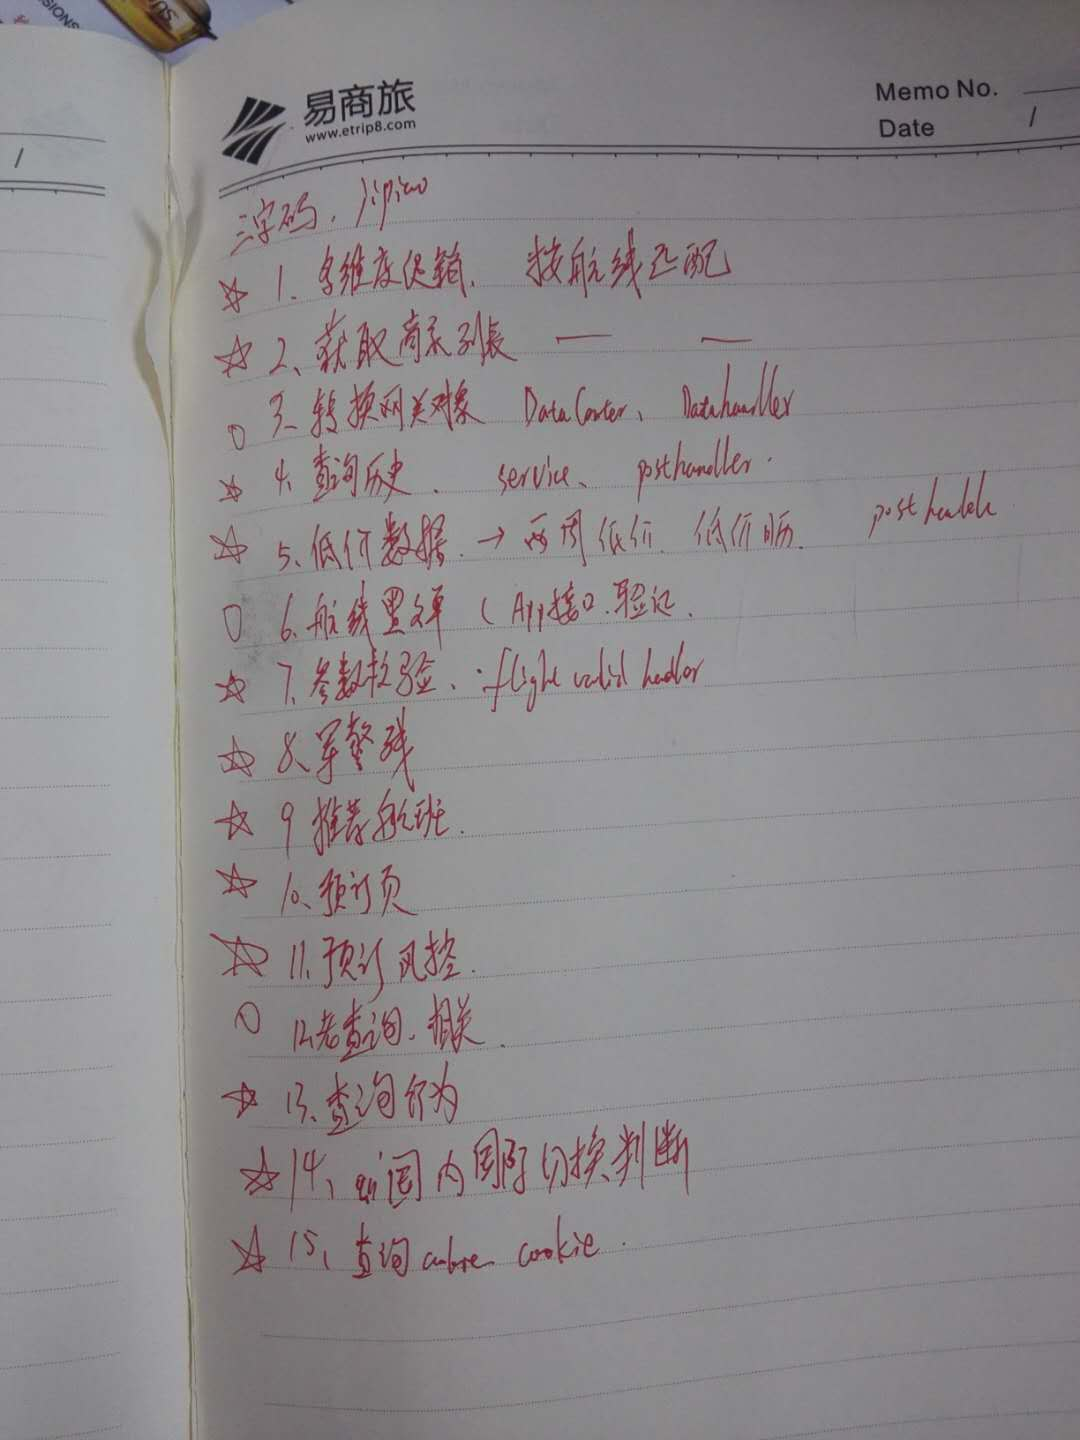 SIONS
易商旅
www.etrip8.com
Memo No.
Date /
/
三字码. jipiao
☆ 1、多维度促销. 按航线匹配
☆ 2、获取商家列表 — —
○ 3、转换网关对象 DataCenter、Datahandler
☆ 4、查询历史、 service、 posthandler.
☆ 5、低价数据. → 两周低价. 低价日历. posthandle
○ 6、航线黑名单 ( App接口.验证.
☆ 7、参数校验、: flight valid handler
☆ 8、军警残
☆ 9 推荐航班.
☆ 10、预订页
☆ 11、预订风控.
○ 12、老查询、相关.
☆ 13、查询行为
☆ 14、国内国际切换判断
☆ 15、查询 cookie.